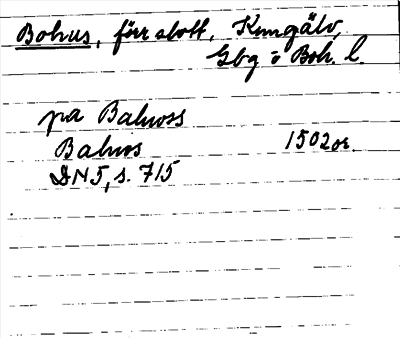 Bohus, förr slott, Kungälv,
Gbg o Boh. l.
pa Bahuss
Bahus 1502 or.
DN 5, s. 715